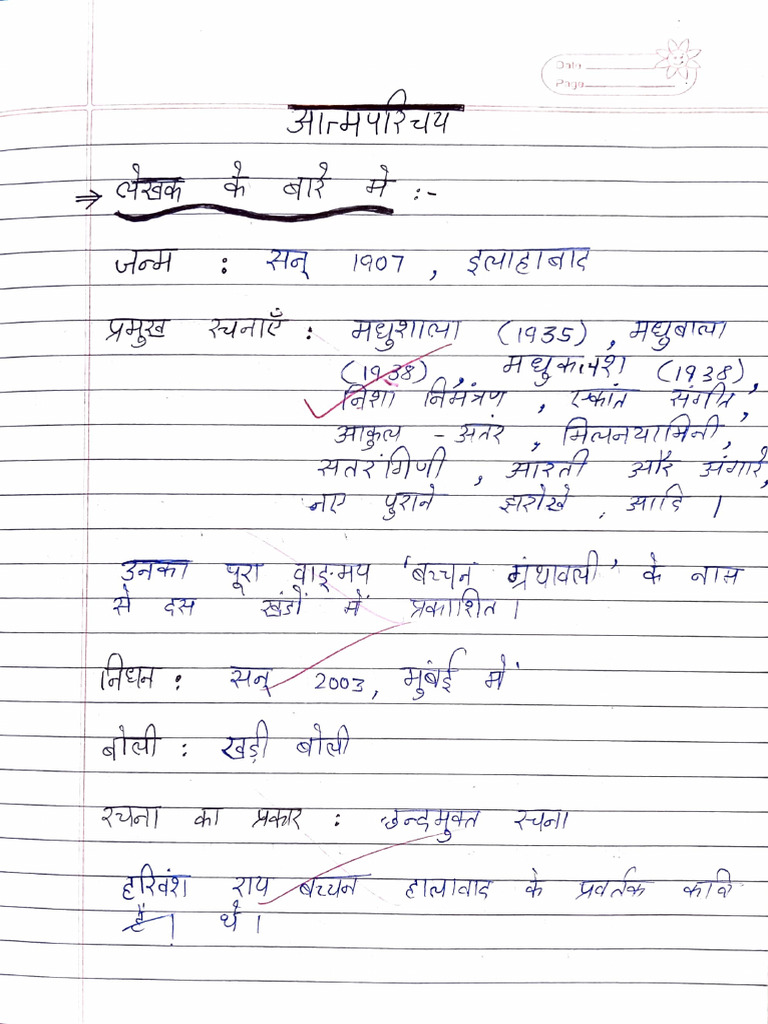 Date
Page
आत्मपरिचय
⇒ लेखक के बारे मे :-
जन्म : सन् 1907 , इलाहाबाद
प्रमुख रचनाएँ : मधुशाला (1935) , मधुबाला
(1938) , मधुकलश (1938) ,
निशा निमंत्रण , एकांत संगीत ,
आकुल - अंतर , मिलनयामिनी ,
सतरंगिणी , आरती और अंगारे,
नए पुराने झरोखे , आदि ।
उनका पूरा वाङ्मय 'बच्चन ग्रंथावली' के नाम
से दस खंडों में प्रकाशित ।
निधन : सन् 2003, मुंबई में
बोली : खड़ी बोली
रचना का प्रकार : छन्दमुक्त रचना
हरिवंश राय बच्चन हालावाद के प्रवर्तक कवि
है । थे ।